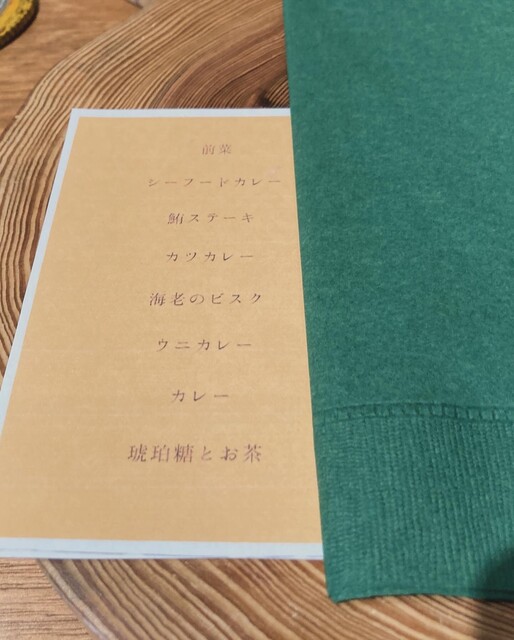 前菜
シーフードカレー
鮪ステーキ
カツカレー
海老のビスク
ウニカレー
カレー
琥珀糖とお茶